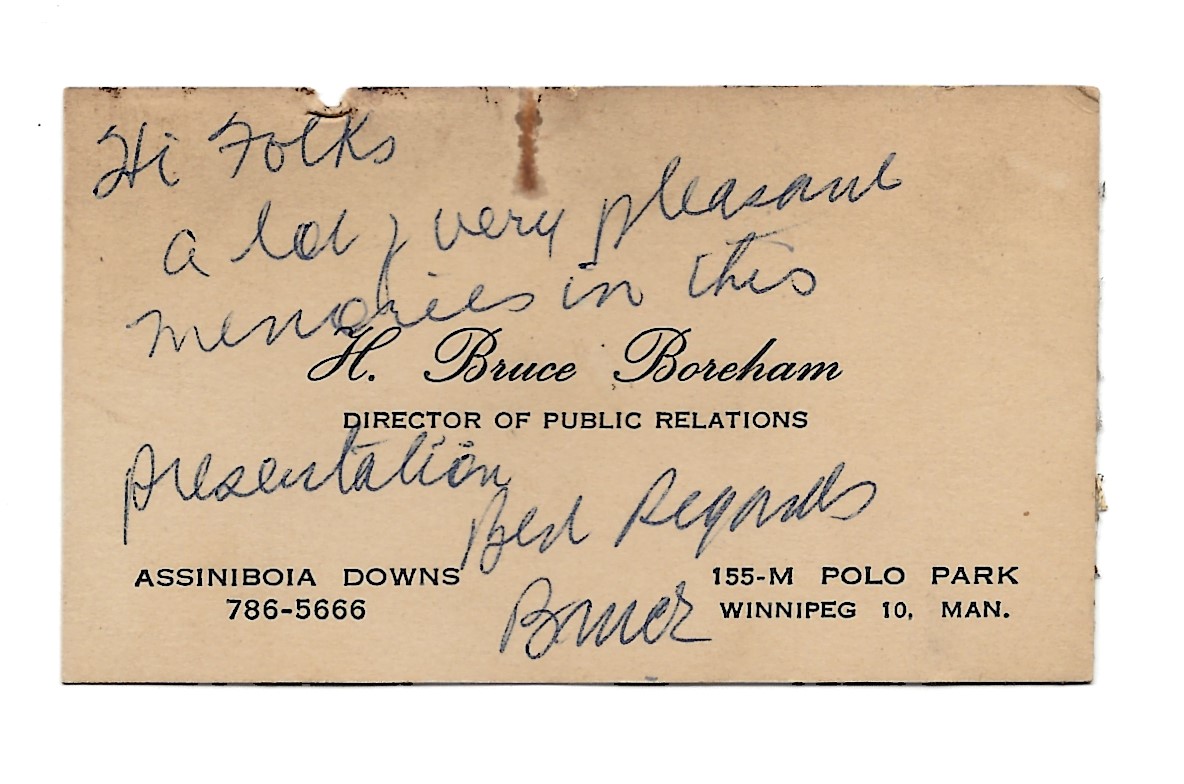 Hi Folks
a lot of very pleasant
memories in this
H. Bruce Boreham
DIRECTOR OF PUBLIC RELATIONS
presentation
Best Regards
ASSINIBOIA DOWNS
786-5666
155-M POLO PARK
WINNIPEG 10, MAN.
Bruce